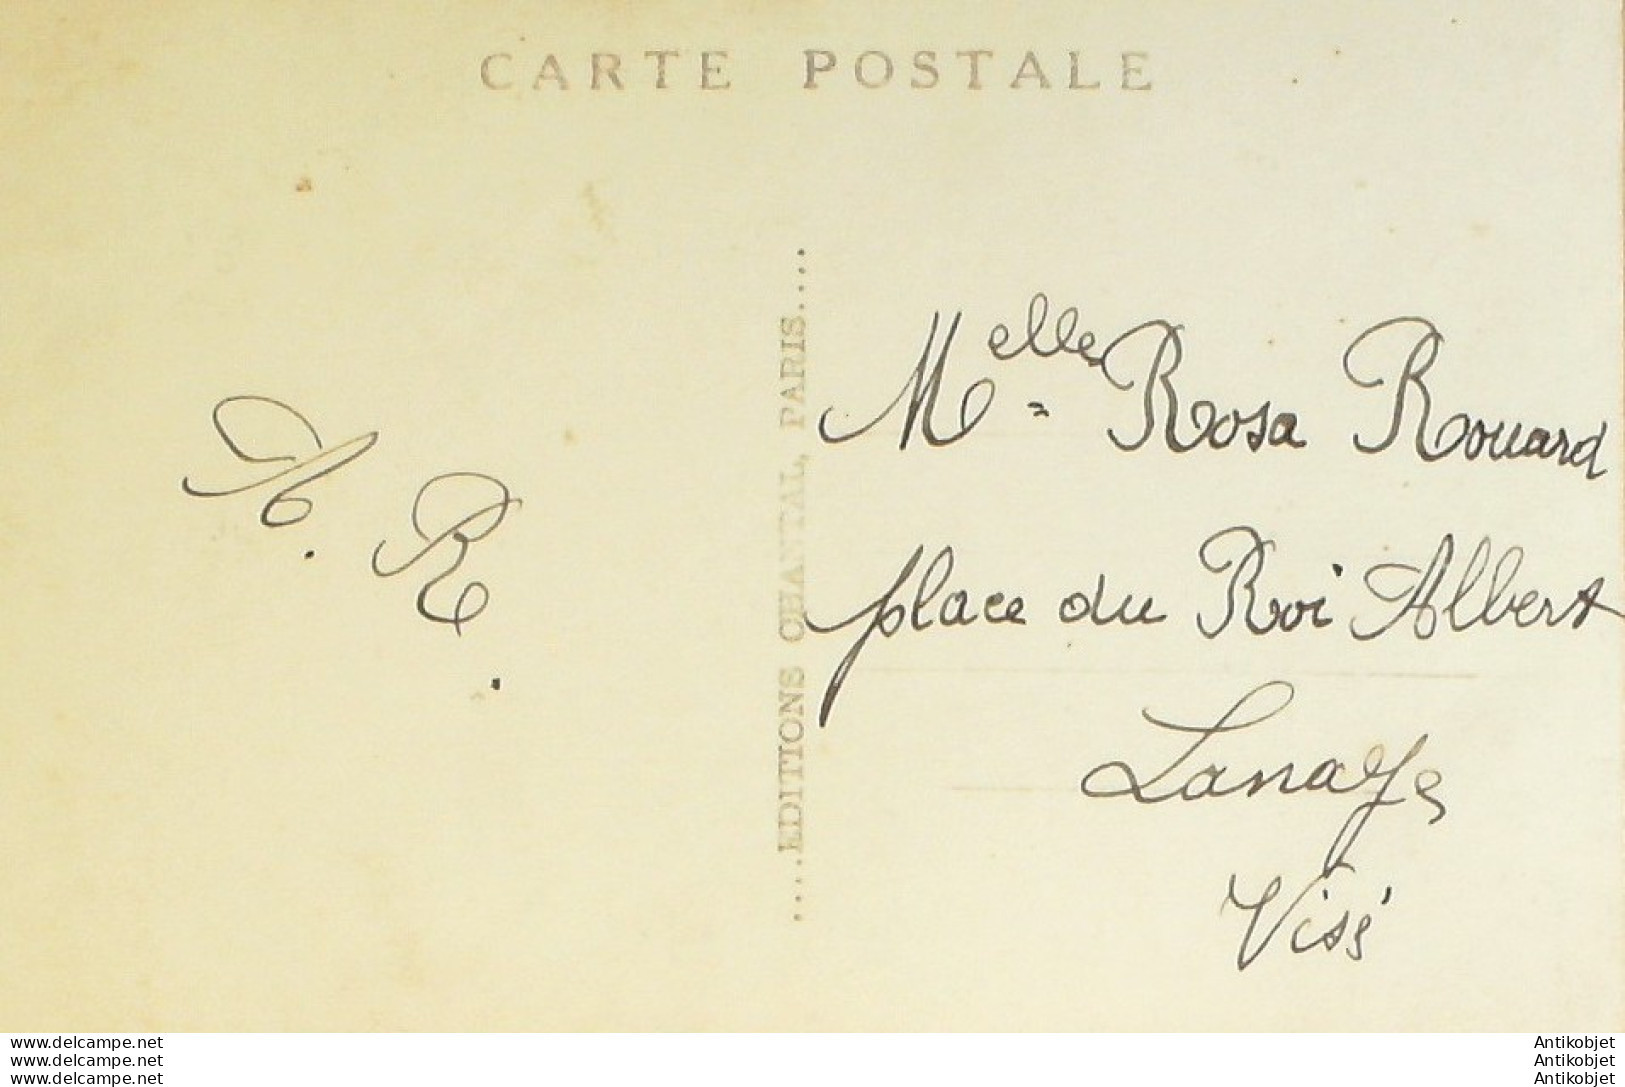 CARTE POSTALE
A. R.
....EDITIONS CHANTAL, PARIS....
Melle Rosa Rouard
place du Roi Albert
Lanaye
Visé
www.delcampe.net
www.delcampe.net
www.delcampe.net
Antikobjet
Antikobjet
Antikobjet